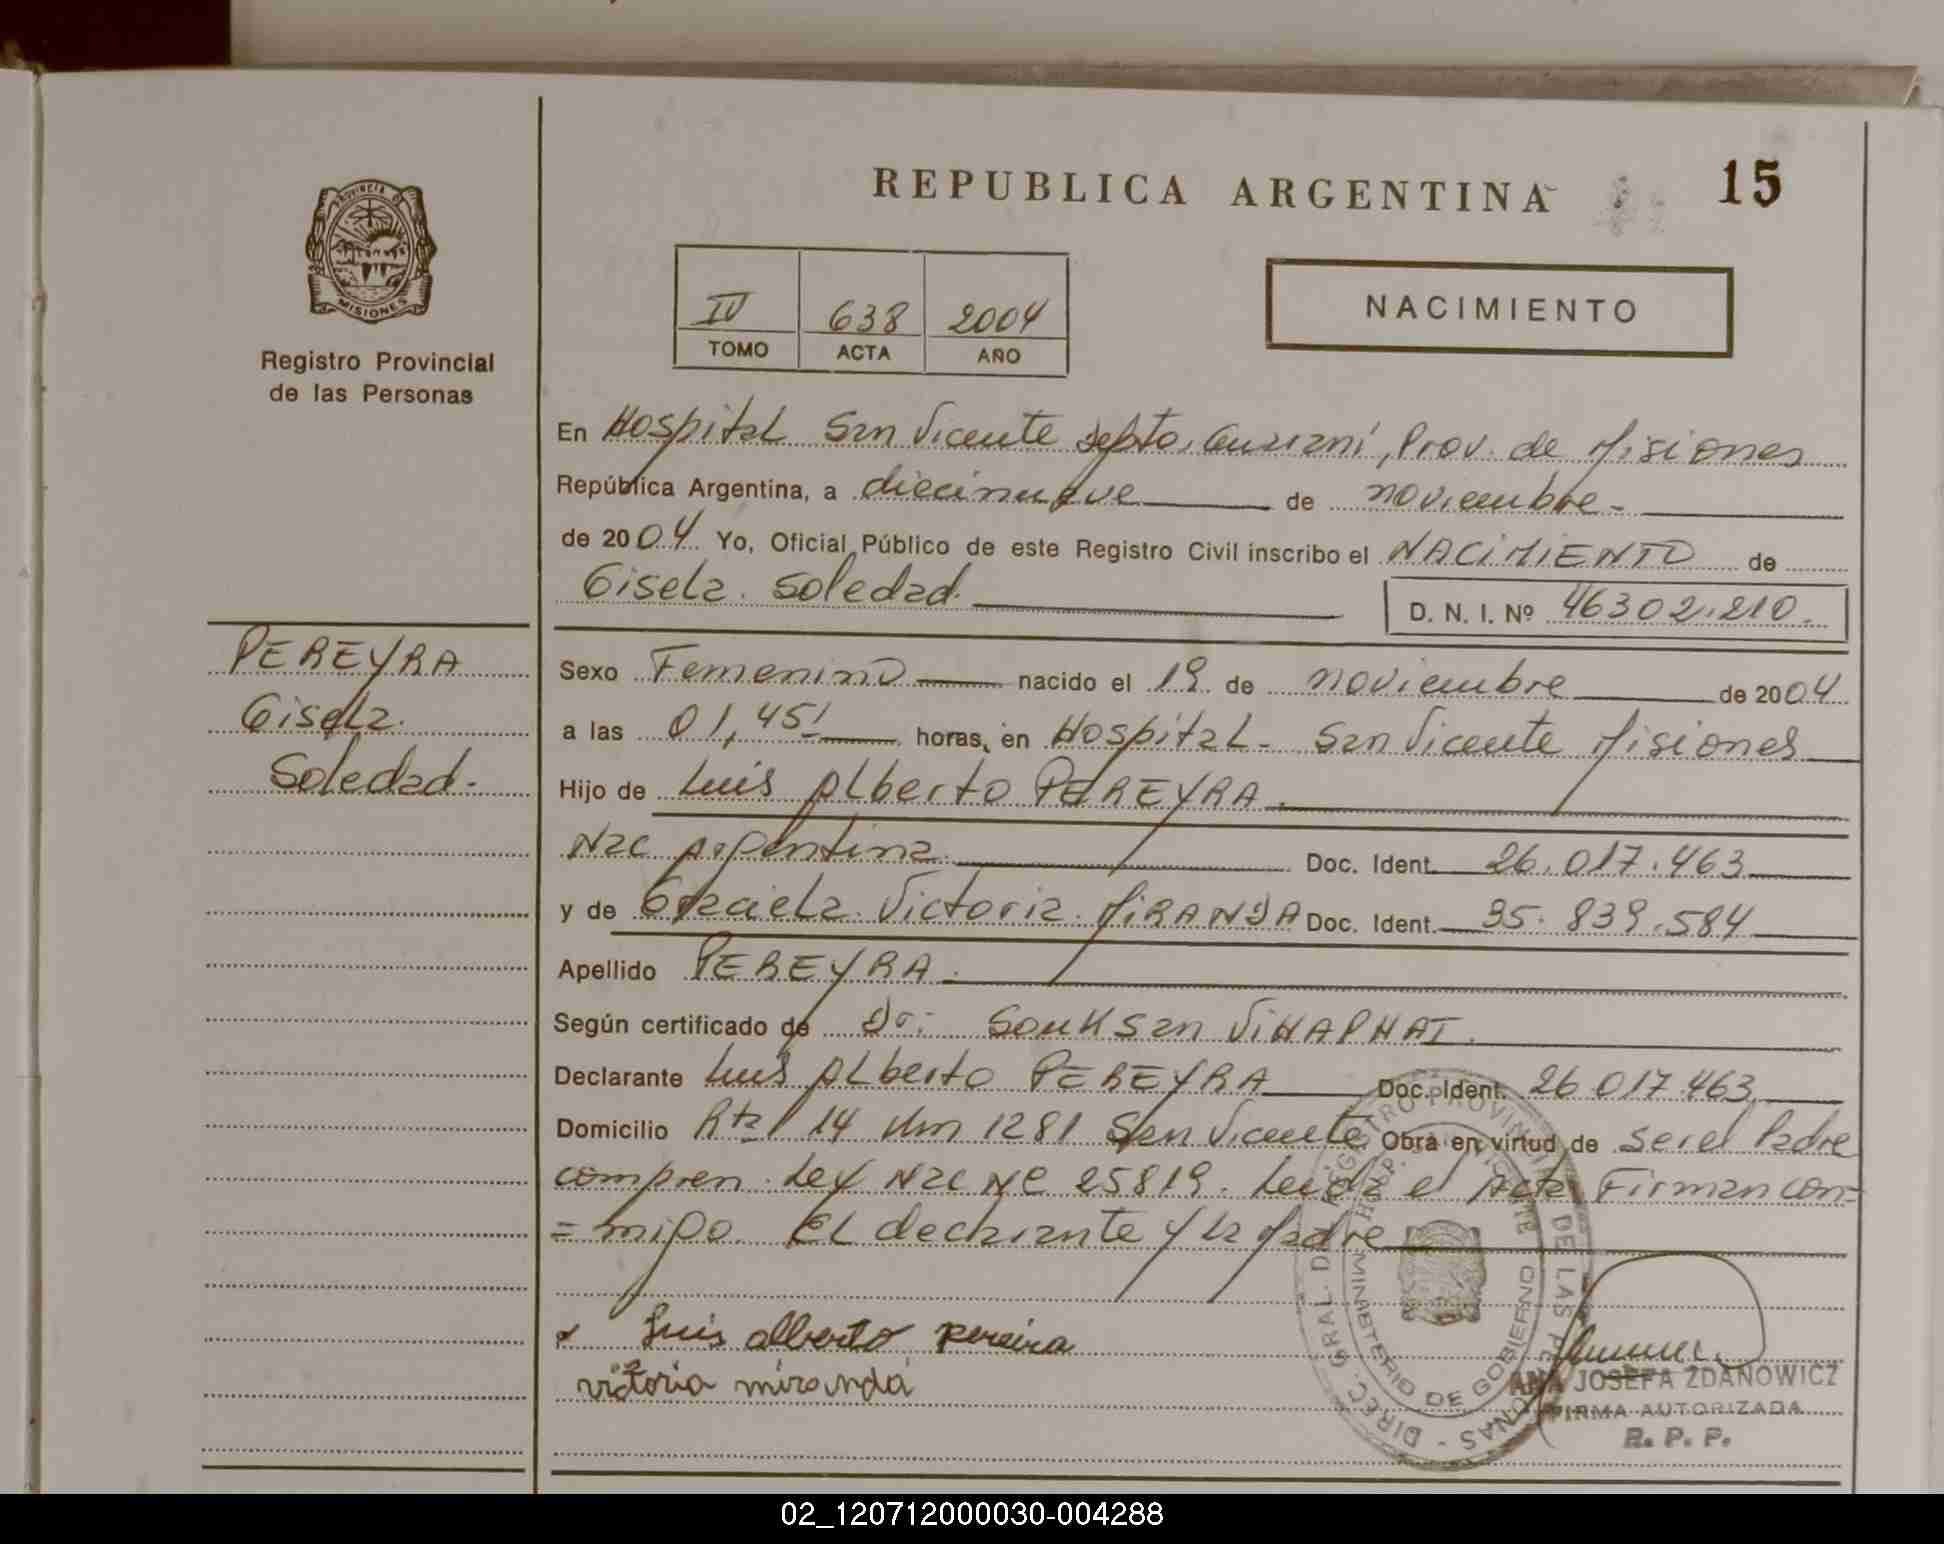 REPUBLICA ARGENTINA
15
PROVINCIA DE
MISIONES
Registro Provincial
de las Personas
IV 638 2004
TOMO ACTA AÑO
NACIMIENTO
En Hospital San Vicente Depto. Guaraní, Prov. de Misiones
República Argentina, a diecinueve de noviembre
de 2004 Yo, Oficial Público de este Registro Civil inscribo el NACIMIENTO de
Gisela Soledad.
D. N. I. Nº 46302.210.
PEREYRA
Gisela
Soledad.
Sexo Femenino nacido el 19 de noviembre de 2004
a las 01,45' horas, en Hospital San Vicente Misiones
Hijo de Luis Alberto PEREYRA.
Nac Argentina. Doc. Ident. 26.017.463
y de Graciela Victoria MIRANDA Doc. Ident. 35.839.584
Apellido PEREYRA.
Según certificado de Dr. Souksan VIHAPHAT.
Declarante Luis Alberto PEREYRA Doc. Ident. 26 017.463
Domicilio Rta 14 Km 1281 San Vicente Obra en virtud de ser el Padre
compren. Ley Nac Nº 25819. Leida el Acta Firman con=
=migo. El declarante y la Madre
Luis alberto pereira
victoria miranda
DIREC. GRAL. DEL REGISTRO PROVINCIAL DE LAS PERSONAS
HOSP. VICENTE
MINISTERIO DE GOBIERNO
ANA JOSEFA ZDANOWICZ
FIRMA AUTORIZADA
R. P. P.
02_120712000030-004288